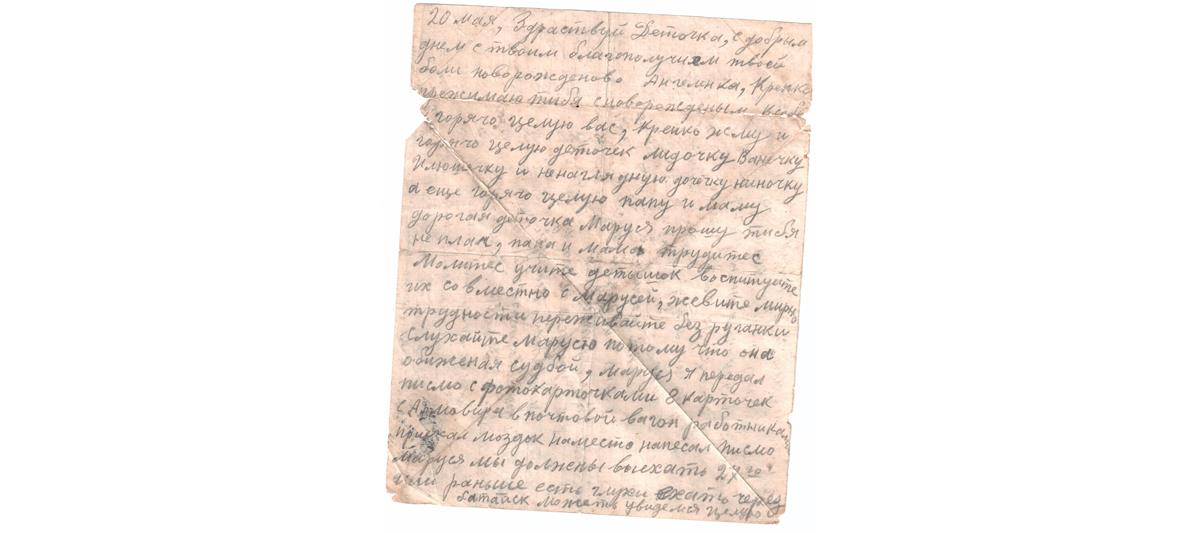 20 мая, Здраствуй Деточка, с добрым
днем с твоим благополучием твоей
боли новорожденово Ангеленка, Крепко
прежимаю тибя с новорожденым к себе
горячо целую вас, крепко жму и
горячо целую деточек Лидочку Ванечку
Илюшечку и ненаглядную дочечку Ниночку
а еще горячо целую папу и маму
дорогая деточка Маруся прошу тибя
не плач, папа и мама трудитес
Молитес учите детышок воспитуйте
их совместно с Марусей, жевите мирно
трудности переживайте без руганки
слухайте Марусю потому что она
обиженая судбой, Маруся Я передал
писмо с фотокарточками 8 карточек
с Армовира в почтовой вагон работникам
приехал моздок наместо написал писмо
Маруся мы должны выехать 27 го
или раньше есть глухи ехать через
батайск может увидемся целую